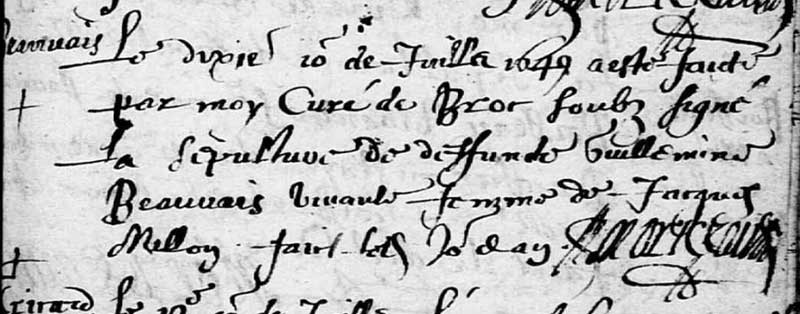 Beauvais Le dixie jo de Juille 1649 a este faicte
par moy Curé de Broc soubz signé
La sepulture de deffuncte Guillemine
Beauvais vivante femme de Jacques
Mellon faict lesd jo et an
Girard le de Juille